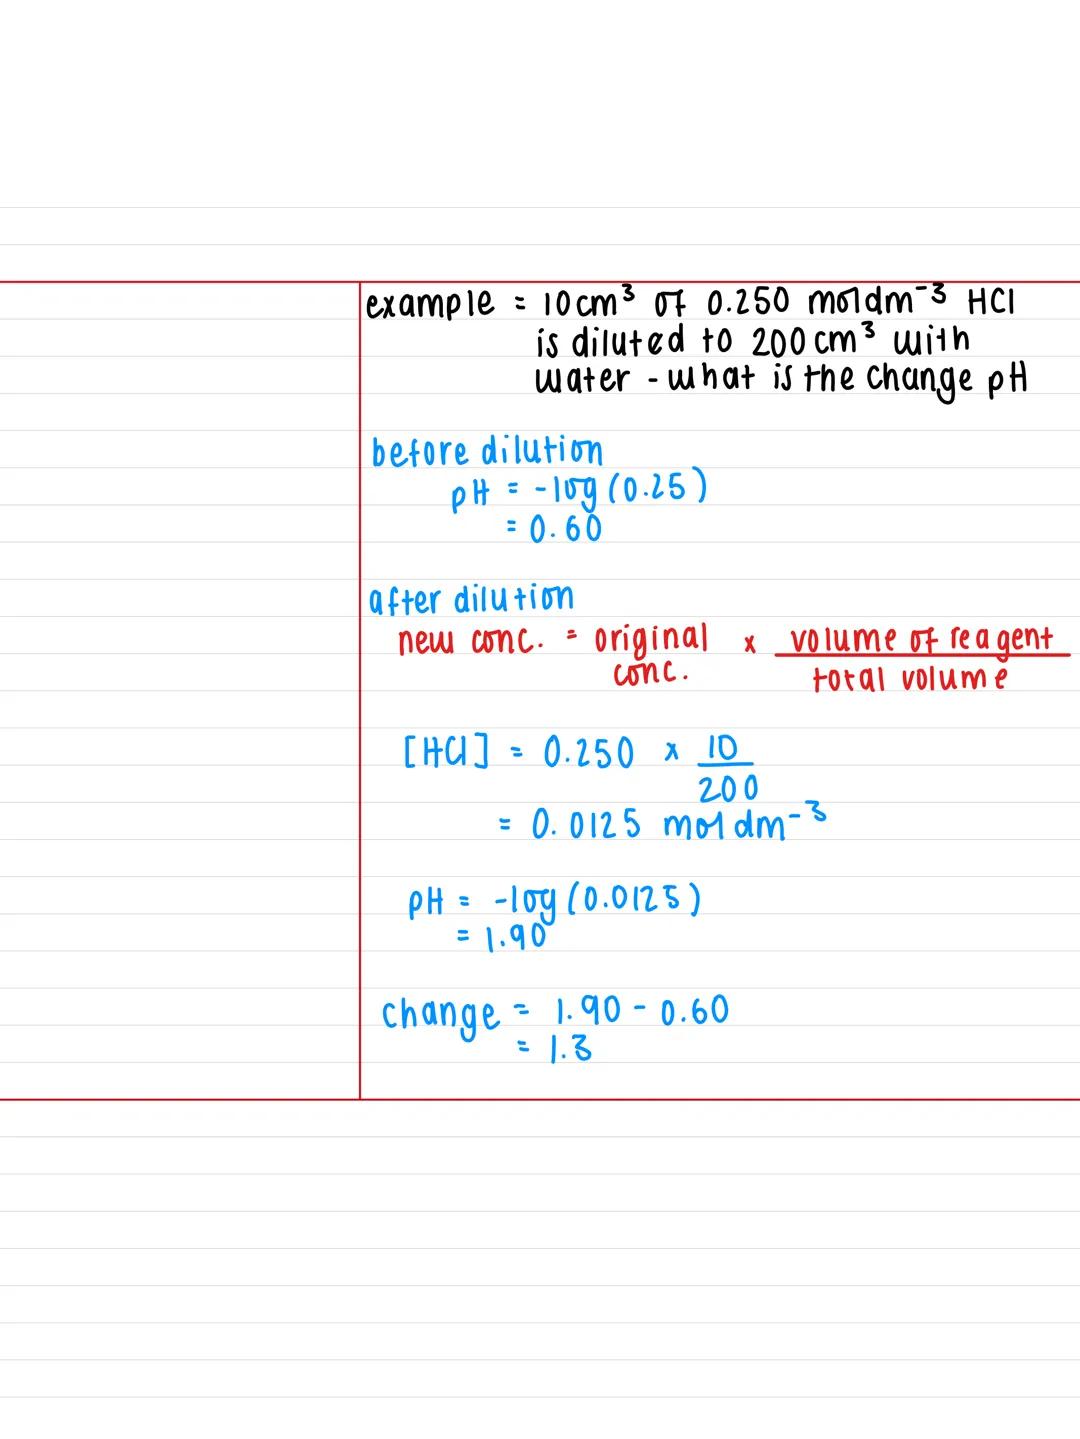 example = 10cm³ of 0.250 moldm⁻³ HCl
is diluted to 200cm³ with
water - what is the change pH
before dilution
pH = -log (0.25)
= 0.60
after dilution
new conc. = original conc. x volume of reagent / total volume
[HCl] = 0.250 x 10/200
= 0.0125 moldm⁻³
pH = -log (0.0125)
= 1.90
change = 1.90 - 0.60
= 1.3